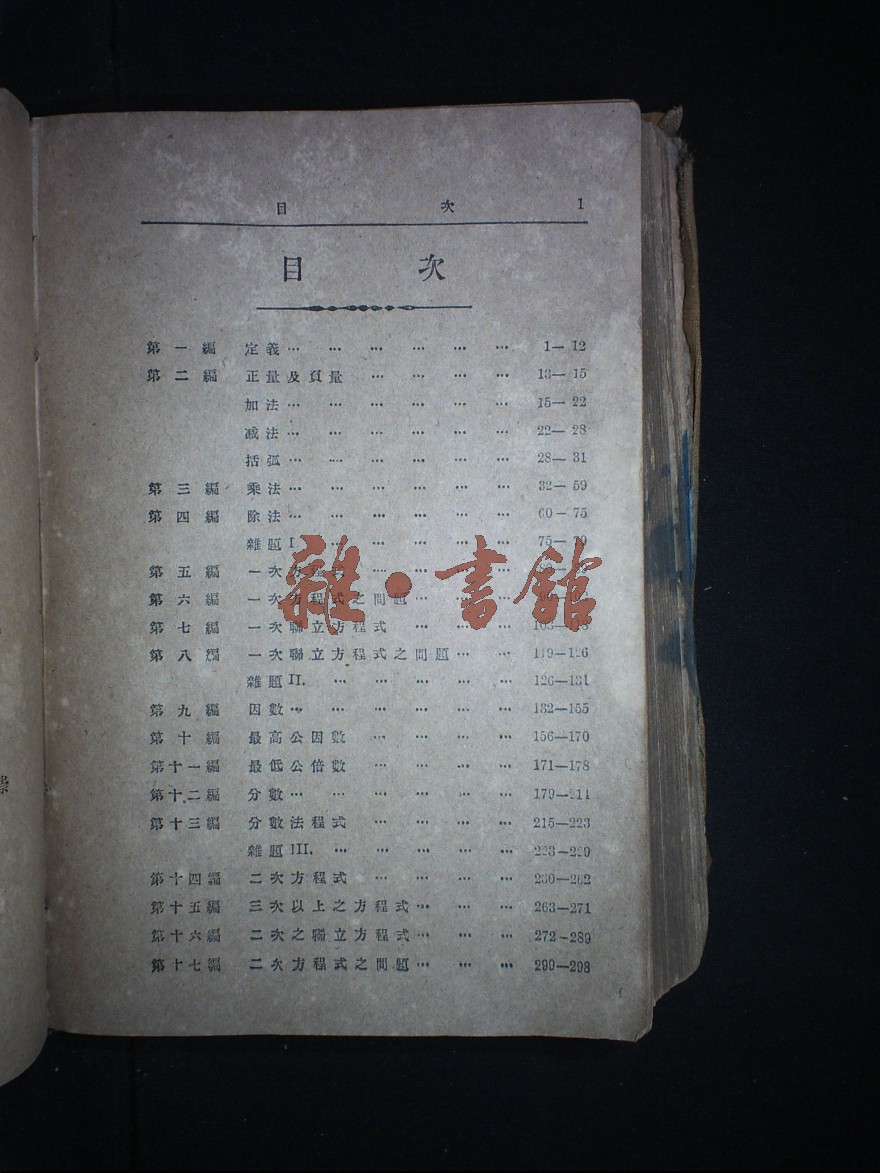 目 次 1
目 次
第一編 定義… … … … … … 1—12
第二編 正量及負量 … … … … 13—15
加法… … … … … … 15—22
減法… … … … … … 22—28
括弧… … … … … … 28—31
第三編 乘法… … … … … … 32—59
第四編 除法… … … … … … 60—75
雜題 I … … … … … 75—79
第五編 一次方程式 … … … …
第六編 一次方程式之問題… … …
第七編 一次聯立方程式 … … …
第八編 一次聯立方程式之問題… … 119—126
雜題 II. … … … … … 126—131
第九編 因數… … … … … … 132—155
第十編 最高公因數 … … … … 156—170
第十一編 最低公倍數 … … … … 171—178
第十二編 分數… … … … … … 179—214
第十三編 分數法程式 … … … … 215—223
雜題 III. … … … … … 223—229
第十四編 二次方程式 … … … … 230—262
第十五編 三次以上之方程式… … … 263—271
第十六編 二次之聯立方程式… … … 272-289
第十七編 二次方程式之問題… … … 290—298
雜·書館